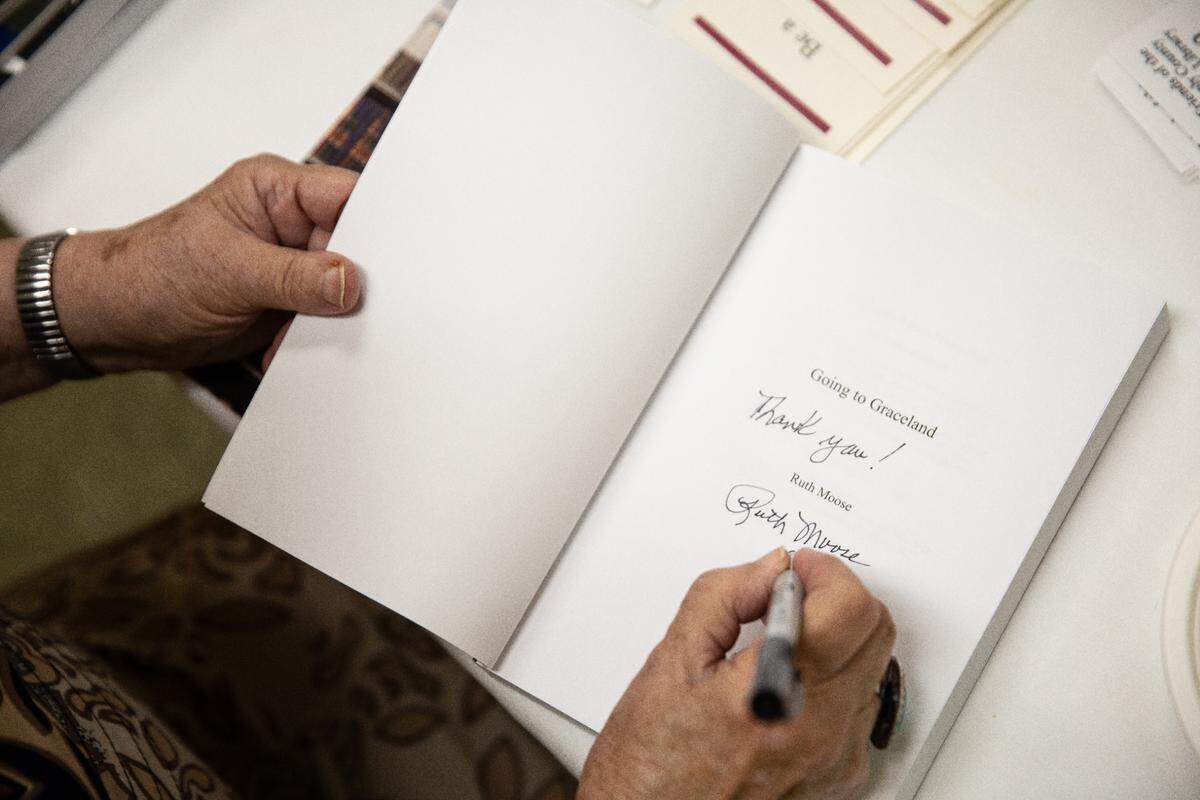 Be a
Friends of the
County
Library
Going to Graceland
Thank you!
Ruth Moose
Ruth Moose